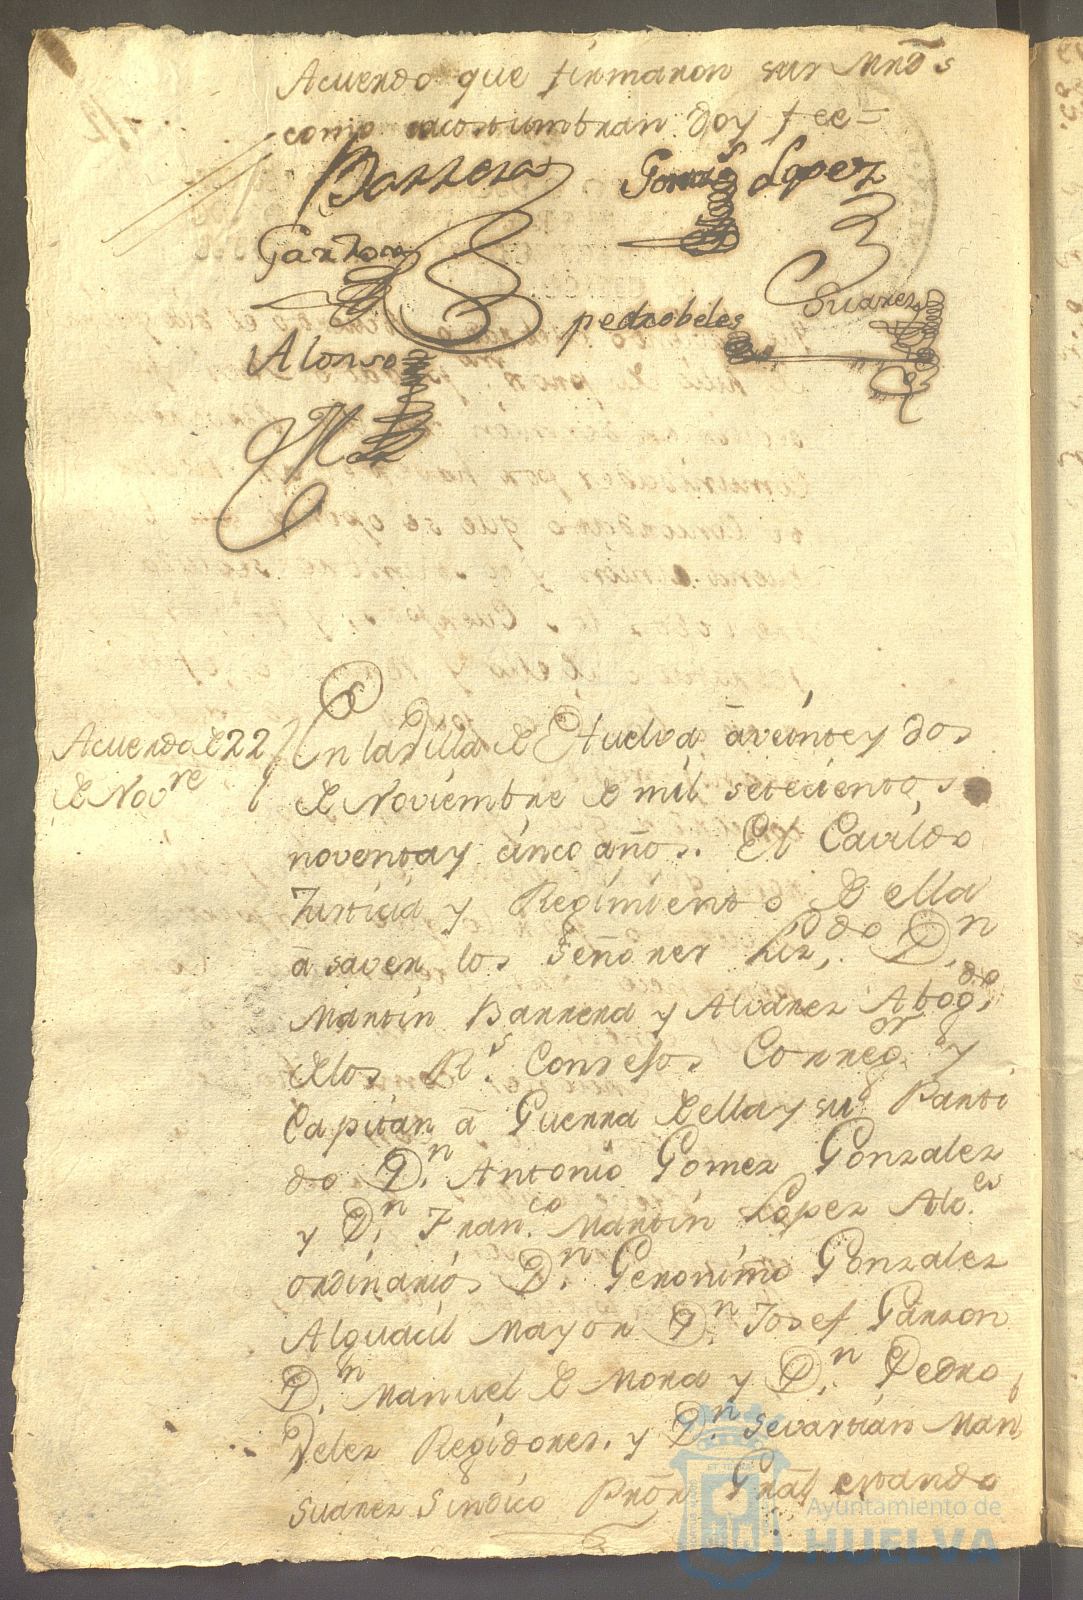 Acuerdo que firmaron sus Mrds
como acostumbran doy fee=
Barrera
Gomez
Lopez
Garzon
Suarez
pedrobeles
Alonso
Acuerdo de 22
de Novre
En la Villa de Huelva â veinte y dos
de Noviembre de mil setecientos
noventa y cinco años. El Cavildo
Justicia y Regimiento della
â saver los señores Lizdo. Dn.
Martin Barrera y Alvarez Abogdo
de los Rs. Consejos Corregor y
Capitan â Guerra della y su Parti
do Dn. Antonio Gomez Gonzalez
y Dn. Franco. Martin Lopez Alces
ordinarios Dn. Geronimo Gonzalez
Alguacil Mayor Dn. Josef Garzon
Dn. Manuel de Mora y Dn. Pedro
Velez Regidores. y Dn. Sevastian Marn
Suarez Sindico Prôr Grâl estando
Ayuntamiento de
HUELVA